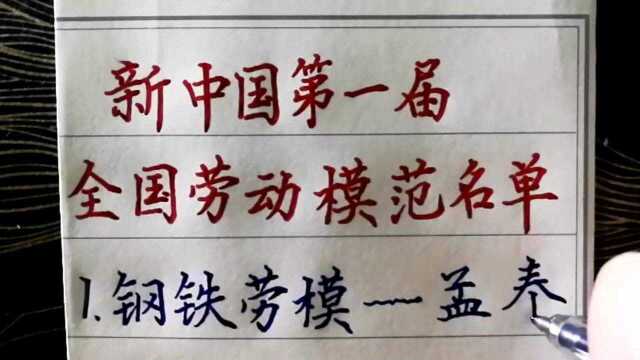 新中国第一届
全国劳动模范名单
1.钢铁劳模——孟